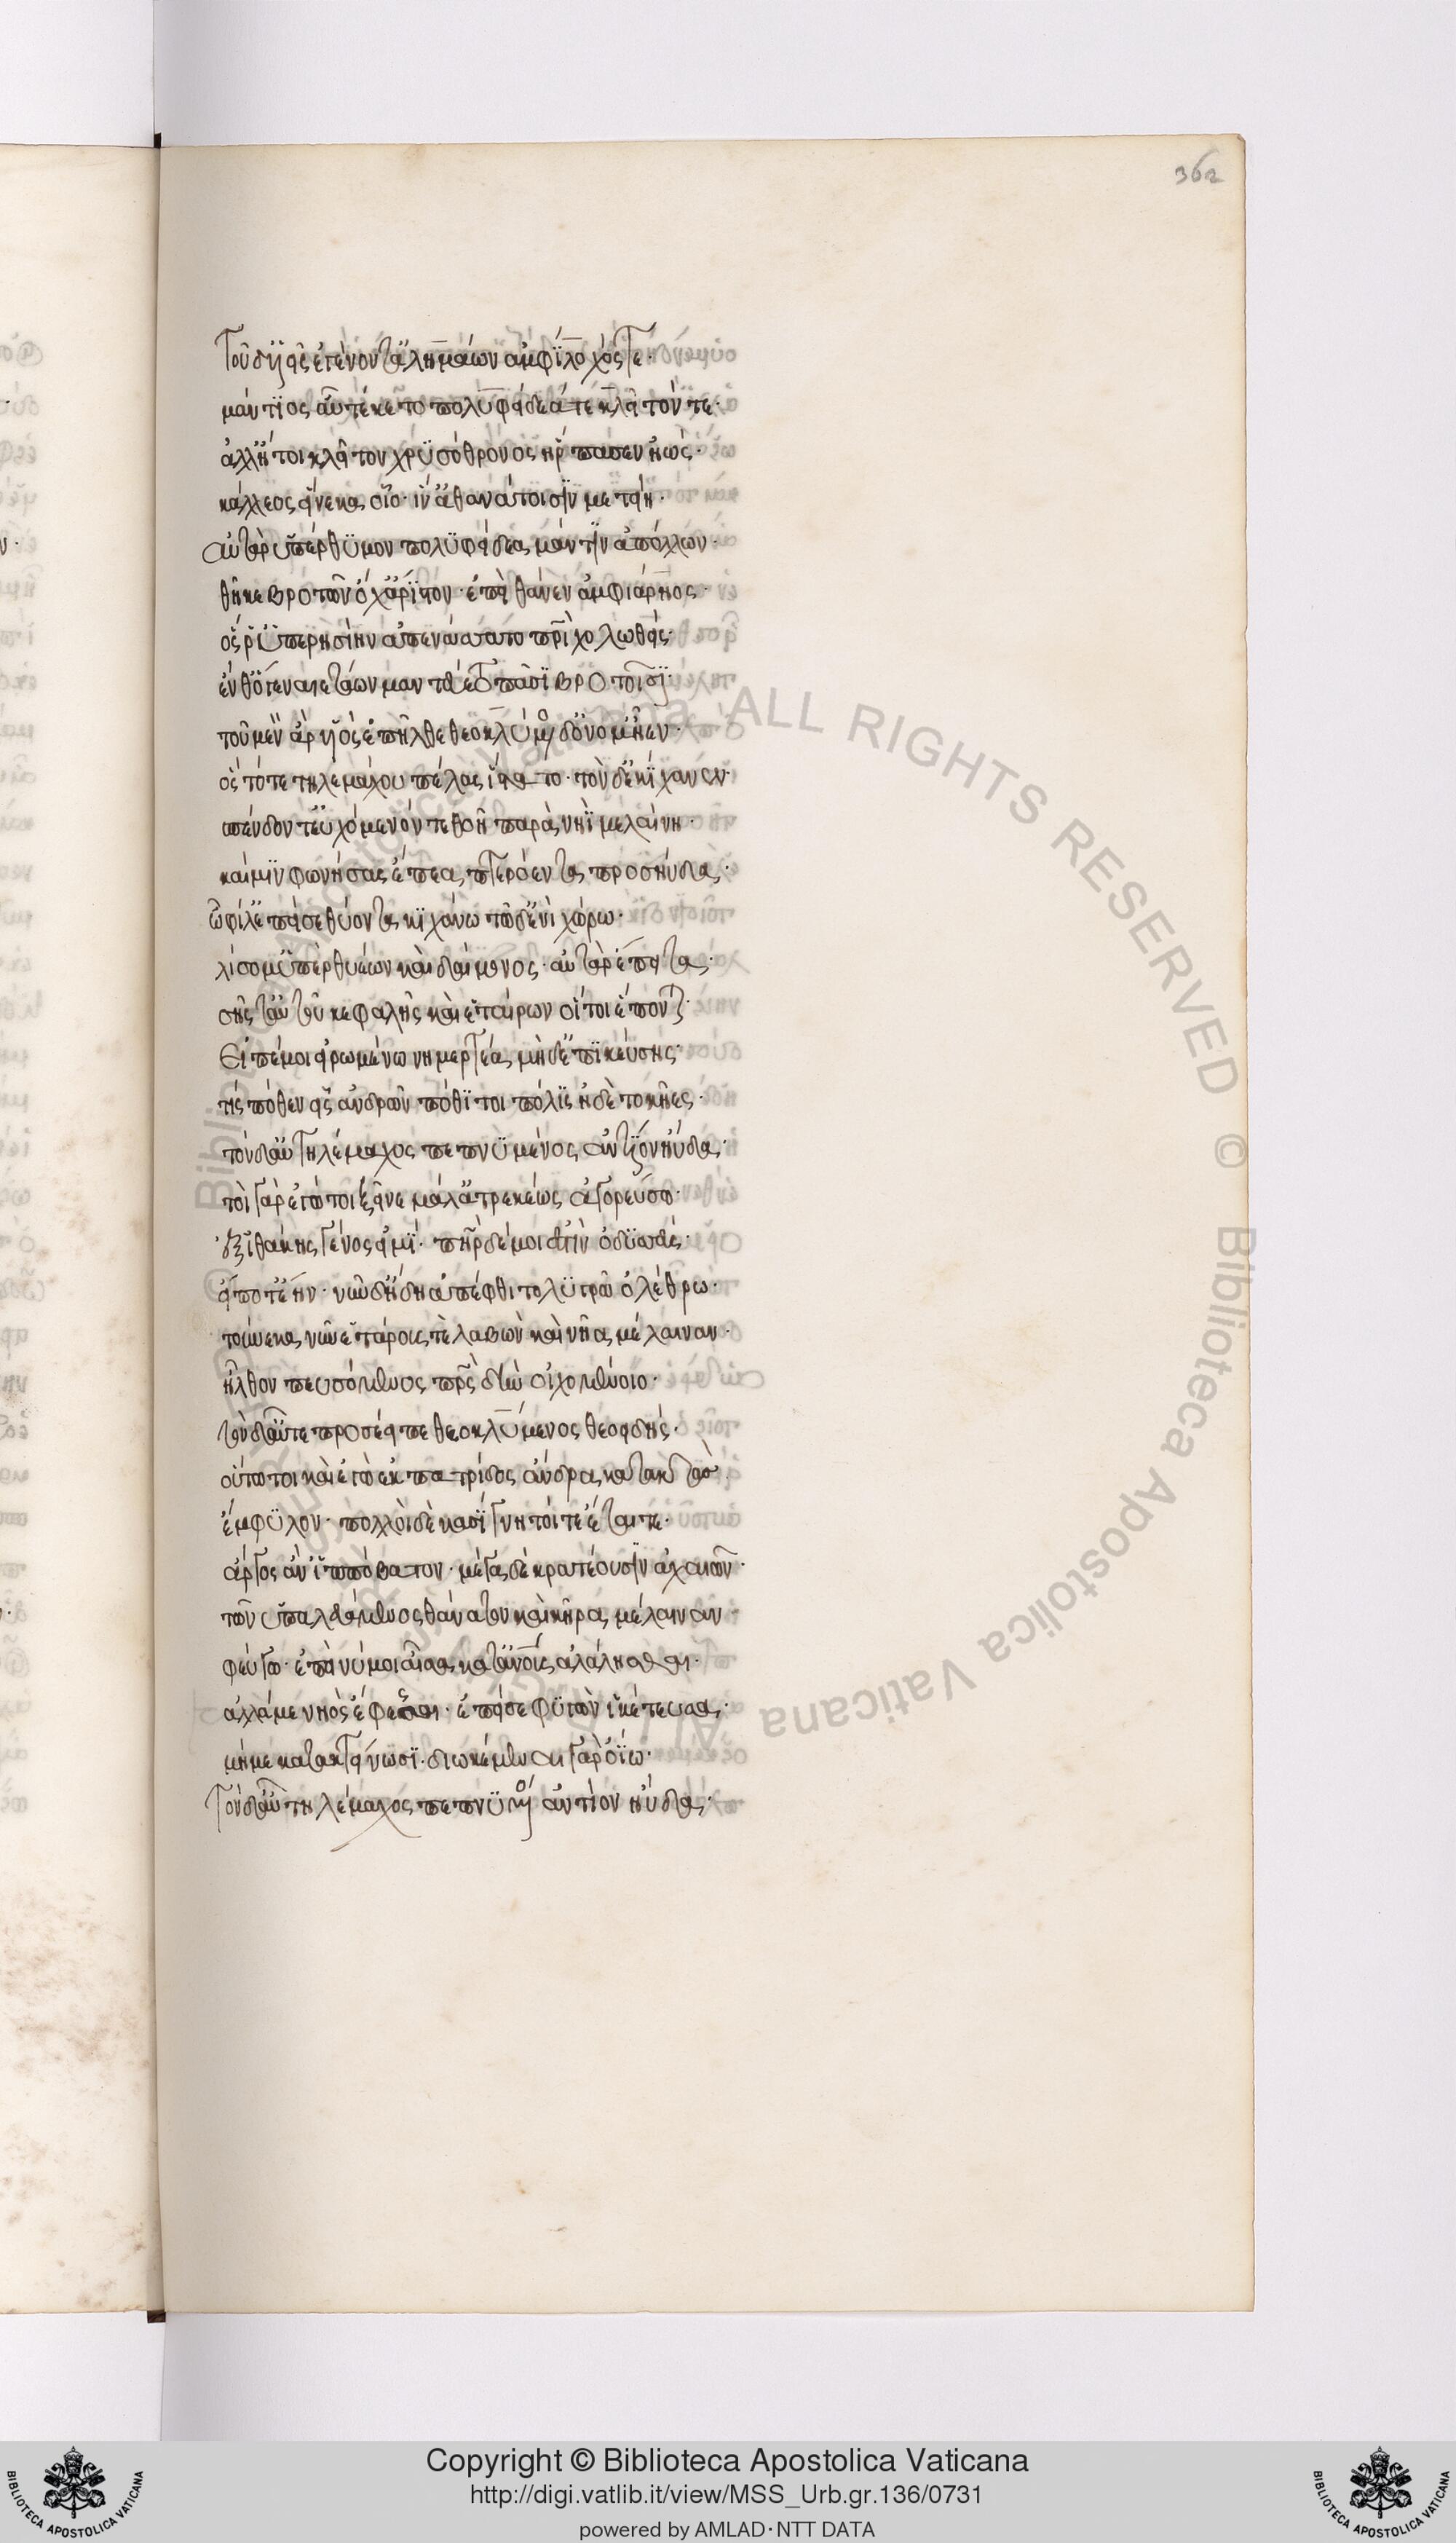 362
Τοῦ δ' υἱεῖς ἐγένοντ' ἀλκμαίων ἀμφίλοχός τε·
μάντιος αὖ τέκετο πολυφείδεά τε κλεῖτόν τε·
ἀλλ' ἤτοι κλεῖτον χρυσόθρονος ἥρπασεν ἠώς·
κάλλεος εἵνεκα οἷο· ἵν' ἀθανάτοισιν μετείη·
αὐτὰρ ὑπέρθυμον πολυφείδεα μάντιν ἀπόλλων·
θῆκε βροτῶν ὄχ' ἄριστον· ἐπεὶ θάνεν ἀμφιάρηος·
ὅς ῥ' ὑπερησίην ἀπενάσατο πατρὶ χολωθείς·
ἔνθ' ὅγε ναιετάων μαντεύετο πᾶσι βροτοῖσι·
τοῦ μὲν ἄρ' υἱὸς ἐπῆλθε θεοκλύμενος δ' ὄνομ' ἦεν·
ὃς τότε τηλεμάχου πέλας ἵστατο· τὸν δ' ἐκίχανεν·
σπένδοντ' εὐχόμενόν τε θοῆ παρὰ νηῒ μελαίνη·
καί μιν φωνήσας ἔπεα πτερόεντα προσηύδα·
ὦ φίλ' ἐπεί σε θύοντα κιχάνω τῶδ' ἐνὶ χώρω·
λίσομ' ὑπὲρ θυέων καὶ δαίμονος· αὐτὰρ ἔπειτα·
σῆς τ' αὐτοῦ κεφαλῆς καὶ ἑταίρων οἵ τοι ἕπονται·
Εἰπέ μοι εἰρωμένω νημερτέα μὴ δ' ἐπικεύσης·
τίς πόθεν εἶς ἀνδρῶν πόθι τοι πόλις ἠδὲ τοκῆες·
τὸν δ' αὖ Τηλέμαχος πεπνυμένος ἀντίον ηὔδα·
τοὶ γὰρ ἐγώ τοι ξεῖνε μάλ' ἀτρεκέως ἀγορεύσω·
ἐξ ἰθάκης γένος εἰμί· πατὴρ δέ μοι ἐστὶν ὀδυσσεύς·
εἴποτ' ἔην· νῦν δ' ἤδη ἀπέφθιτο λυγρῶ ὀλέθρω·
τοὔνεκα νῦν ἑτάρους τε λαβὼν καὶ νῆα μέλαιναν·
ἦλθον πευσόμενος πατρὸς δὴν οἰχομένοιο·
τὸν δ' αὖτε προσέειπε θεοκλύμενος θεοειδής·
οὕτω τοι καὶ ἐγὼ ἐκ πατρίδος ἄνδρα κατακτὰς
ἔμφυλον· πολλοὶ δὲ κασίγνητοί τε ἔται τε·
ἄργος ἀν' ἱππόβατον· μέγα δὲ κρατέουσιν ἀχαιῶν·
τῶν ὑπαλευάμενος θάνατον καὶ κῆρα μέλαιναν
φεύγω· ἐπεί νύ μοι αἶσα κατ' ἀνθρώπους ἀλάλησθαι·
ἀλλά με νηὸς ἔφεσσαι· ἐπεί σε φυγὼν ἱκέτευσα·
μή με κατακτείνωσι· διωκέμεναι γὰρ ὀΐω·
Τὸν δ' αὖ τηλέμαχος πεπνυμένος ἀντίον ηὔδα·
Copyright © Biblioteca Apostolica Vaticana
http://digi.vatlib.it/view/MSS_Urb.gr.136/0731
powered by AMLAD·NTT DATA